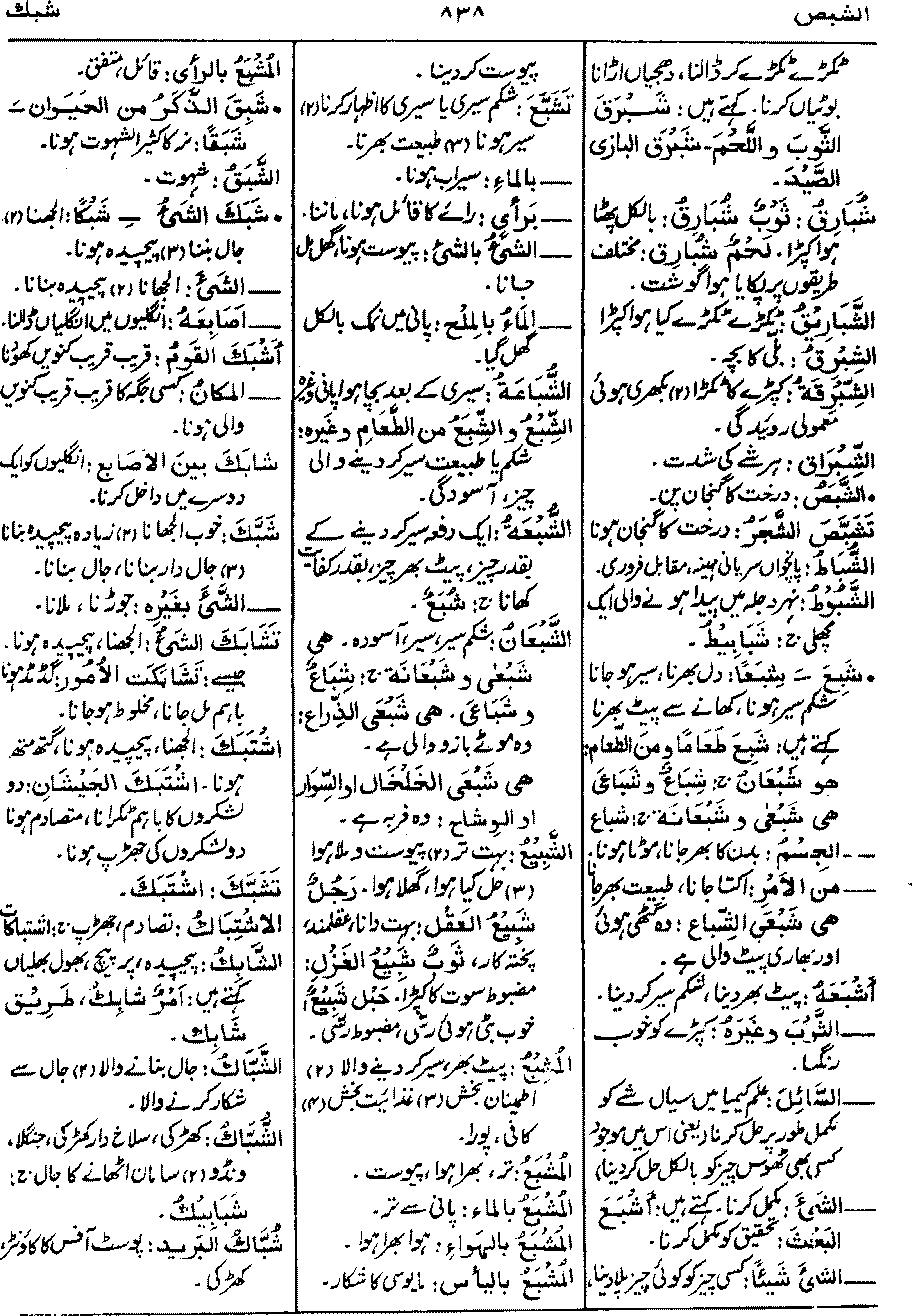 الشبص
۸۳۸
شبك
ٹکڑے ٹکڑے کر ڈالنا، دھجیاں اڑانا
بوٹیاں کرنا. کہتے ہیں: شَبْرَقَ
الثَّوْبَ و اللَّحْمَ۔ شَبْرَقَ البازی
الصَّيْدَ۔
شُبَارِقٌ: ثَوْبٌ شُبَارِقٌ: بالکل پھٹا
ہوا کپڑا. لَحْمٌ شُبَارِقٌ: مختلف
طریقوں پر پکایا ہوا گوشت.
الشَّبَارِيْقُ: ٹکڑے ٹکڑے کیا ہوا کپڑا
الشِّبْرِقُ: بلی کا بچہ۔
الشِّبْرِقَةُ: کپڑے کا ٹکڑا (۲) بکھری ہوئی
معمولی روئیدگی.
الشِّبْرَاق: ہر شے کی شدت.
• الشَّبَصُ: درخت کا گنجان پن.
تَشَبَّصَ الشَّجَرُ: درخت کا گنجان ہونا
الشُّبَاطُ: پانچواں سریانی مہینہ، مقابل فروری.
الشَّبُّوْطُ: نہر دجلہ میں پیدا ہونے والی ایک
مچھلی ج: شَبَابِيْطُ.
• شَبِعَ ـَ شِبَعًا: دل بھرنا، سیر ہو جانا
شکم سیر ہونا، کھانے سے پیٹ بھرنا
کہتے ہیں: شَبِعَ طَعَامًا و مِنَ الطَّعام:
هو شَبْعَانُ ج: شِبَاعٌ و شَبَاعَى
هى شَبْعَى و شَبْعَانَة ج: شِبَاع
ــــ الجِسْمُ: بدن کا بھر جانا، موٹا ہونا.
ــــ من الأمْرِ: اکتا جانا، طبیعت بھر جانا
هى شَبْعَى الشِّبَاع: وہ گٹھی ہوئی
اور بھاری پیٹ والی ہے.
أَشْبَعَهُ: پیٹ بھر دینا، شکم سیر کر دینا.
ــــ الثَّوْبَ وغَيْرَهُ: کپڑے کو خوب
رنگنا.
ــــ السَّائِلَ: علم کیمیا میں سیال شے کو
مکمل طور پر حل کرنا (یعنی اس میں موجود
کسی بھی ٹھوس چیز کو بالکل حل کر دینا)
ــــ الشئَ: مکمل کرنا. کہتے ہیں: أَشْبَعَ
البَحْثَ: تحقیق کو مکمل کرنا.
ــــ الشئَ شَيْئًا: کسی چیز کو کوئی چیز پلا دینا،
پیوست کر دینا.
تَشَبَّعَ: شکم سیری یا سیری کا اظہار کرنا (۲)
سیر ہونا (۳) طبیعت بھرنا.
ــــ بالماءِ: سیراب ہونا.
ــــ بَرَأي: رائے کا قائل ہونا، ماننا.
ــــ الشئُ بالشئِ: پیوست ہونا، گھل مل
جانا.
ــــ المَاءُ بالمِلْحِ: پانی میں نمک بالکل
گھل گیا.
الشُّبَاعَةُ: سیری کے بعد بچا ہوا پانی وغیرہ
الشِّبْعُ و الشِّبَعُ من الطَّعَامِ وغيره:
شکم یا طبیعت سیر کر دینے والی
چیز، آسودگی.
الشُّبْعَةُ: ایک دفعہ سیر کر دینے کے
بقدر چیز، پیٹ بھر چیز، بقدر کفایت
کھانا ج: شُبَعٌ.
الشَّبْعَانُ: شکم سیر، سیر، آسودہ. هى
شَبْعَى و شَبْعَانَة ج: شِبَاعٌ
و شَبَاعَى. هى شَبْعَى الذِّراع:
وہ موٹے بازو والی ہے.
هى شَبْعَى الخَلْخَال او السِّوَار
او الوِشاح: وہ فربہ ہے.
الشَّبِيْعُ: بہت تر (۲) پیوست و ملا ہوا
(۳) حل کیا ہوا، گھلا ہوا. رَجُلٌ
شَبِيْعُ العَقْلِ: بہت دانا، عقلمند،
پختہ کار. ثَوْبٌ شَبِيْعُ الغَزْلِ:
مضبوط سوت کا کپڑا. حَبْلٌ شَبِيْعٌ:
خوب بٹی ہوئی رسّی، مضبوط رسّی.
المُشْبِعُ: پیٹ بھر، سیر کر دینے والا (۲)
اطمینان بخش (۳) غذائیت بخش (۴)
کافی، پورا.
المُشْبَعُ: تر، بھرا ہوا، پیوست.
المُشْبَعُ بالماء: پانی سے تر.
المُشْبَعُ بالهواء: ہوا بھرا ہوا.
المُشْبَعُ باليأس: مایوسی کا شکار.
المُشْبَعُ بالرأى: قائل، متفق.
• شَبِقَ الذَّكَرُ من الحَيَوان ـَ
شَبَقًا: نر کا کثیر الشہوت ہونا.
الشَّبَقُ: شہوت.
• شَبَكَ الشئُ ـِ شَبْكًا: الجھنا (۲)
جال بننا (۳) پیچیدہ ہونا.
ــــ الشئَ: الجھانا (۲) پیچیدہ بنانا.
ــــ أصَابِعَهُ: انگلیوں میں انگلیاں ڈالنا.
أَشْبَكَ القَوْمُ: قریب قریب کنویں کھودنا
ــــ المكانُ: کسی جگہ کا قریب قریب کنویں
والی ہونا.
شابَكَ بين الأصَابع: انگلیوں کو ایک
دوسرے میں داخل کرنا.
شَبَّكَ: خوب الجھانا (۲) زیادہ پیچیدہ بنانا
(۳) جال دار بنانا، جال بنانا.
ــــ الشَّئَ بغَيْرِه: جوڑنا، ملانا.
تَشَابَكَ الشئُ: الجھنا، پیچیدہ ہونا.
جیسے: تَشَابَكَتِ الأُمُورُ: گڈ مڈ ہونا
باہم مل جانا، مخلوط ہو جانا.
اشْتَبَكَ: الجھنا، پیچیدہ ہونا، گتھم گتھ
ہونا۔ اشْتَبَكَ الجَيْشَانِ: دو
لشکروں کا باہم ٹکرانا، متصادم ہونا
دو لشکروں کی جھڑپ ہونا.
تَشَبَّكَ: اشْتَبَكَ.
الاشْتِبَاكُ: تصادم، جھڑپ ج: اشتباكات
الشَّابِكُ: پیچیدہ، پر پیچ، بھول بھلیاں
کہتے ہیں: أمْرٌ شَابِكٌ، طَرِيْق
شَابِك.
الشَّبَّاكُ: جال بنانے والا (۲) جال سے
شکار کرنے والا.
الشُّبَّاكُ: کھڑکی، سلاخ دار کھڑکی، جنگلا،
ونڈو (۲) سامان اٹھانے کا جال ج:
شَبَابِيْكُ.
شُبَّاكُ البَرِيد: پوسٹ آفس کا کاؤنٹر،
کھڑکی.